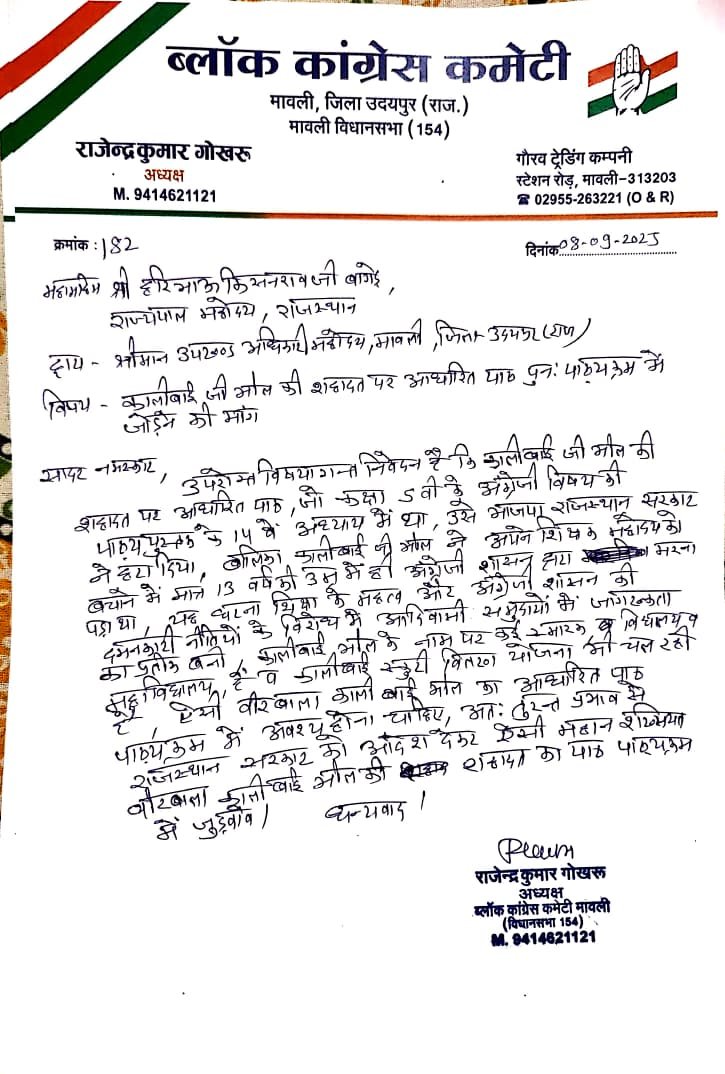 ब्लॉक कांग्रेस कमेटी
मावली, जिला उदयपुर (राज.)
मावली विधानसभा (154)
राजेन्द्रकुमार गोखरू
अध्यक्ष
M. 9414621121
गौरव ट्रेडिंग कम्पनी
स्टेशन रोड़, मावली-313203
☎ 02955-263221 (O & R)
क्रमांक : 182
दिनांक 08-09-2025
महामहिम श्री हरिभाऊ किसनराव जी बागडे,
राज्यपाल महोदय, राजस्थान
द्वारा - श्रीमान उपखण्ड अधिकारी महोदय, मावली, जिला- उदयपुर (राज)
विषय - कालीबाई जी भील की शहादत पर आधारित पाठ पुनः पाठ्यक्रम में
जोड़ने की मांग
सादर नमस्कार,
उपरोक्त विषयान्तर्गत निवेदन है कि कालीबाई जी भील की
शहादत पर आधारित पाठ, जो कक्षा 5 वी के अंग्रेजी विषय की
पाठ्यपुस्तक के 14 वें अध्याय में था, उसे भाजपा राजस्थान सरकार
ने हटा दिया, बालिका कालीबाई जी भील ने अपने शिक्षक महोदय को
बचाने में मात्र 13 वर्ष की उम्र में ही अंग्रेजी शासन द्वारा मरना
पड़ा था, यह घटना शिक्षा के महत्व और अंग्रेजी शासन की
दमनकारी नीतियों के विरोध में आदिवासी समुदायों में जागरूकता
का प्रतीक बनी, कालीबाई भील के नाम पर कई स्मारक व विद्यालय व
महाविद्यालय, है व कालीबाई स्कुटी वितरण योजना भी चल रही
है, ऐसी वीरबाला काली बाई भील का आधारित पाठ
पाठ्यक्रम में अवश्य होना चाहिए, अतः तुरन्त प्रभाव से
राजस्थान सरकार को आदेश देकर ऐसी महान शख्सियत
वीरबाला कालीबाई भील की शहादत का पाठ पाठ्यक्रम
में जुड़वावे। धन्यवाद।
राजेन्द्र कुमार गोखरू
अध्यक्ष
ब्लॉक कांग्रेस कमेटी मावली
(विधानसभा 154)
M. 9414621121